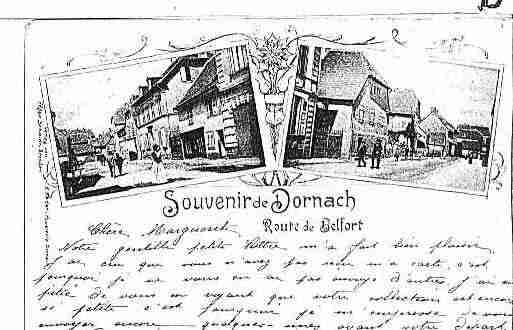 Souvenir de Dornach
Route de Belfort
Chère Marguerite
Notre gentille petite lettre m'a fait bien plaisir
j'ai cru que vous n'avez pas reçu ma carte c'est
pourquoi je ne vous en ai pas envoyé d'autres j'ai eu
pitié de vous en voyant que votre collection est encore
si petite c'est pourquoi je m'empresse de vous
envoyer encore quelques-unes avant votre départ